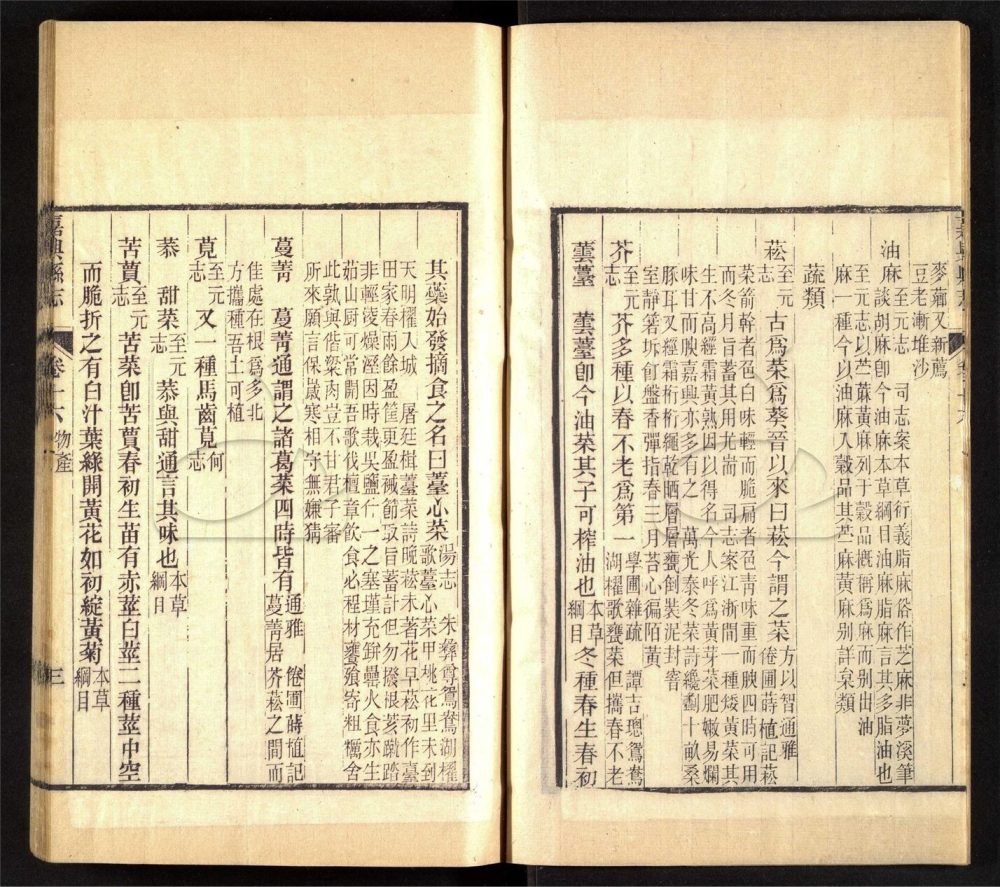 麥蘿又新薦
豆老漸堆沙
油麻 至元志 司志案本草衍義脂麻俗作芝麻非夢溪筆
談胡麻卽今油麻本草綱目油麻脂麻言其多脂油也
至元志以苎蔴黃麻列于穀品槪稱爲麻而别出油
麻一種今以油麻入穀品其苎麻黃麻别詳枲類
蔬類
菘 至元志 古爲菜爲葵晉以來曰菘今謂之菜 方以智通雅 倦圃蒔植記菘
菜箭幹者色白味輕而脆扁者色青味重而腴四時可用
而冬月旨蓄其用尤耑 司志案江浙間一種矮黃菜其
生不高經霜黃熟因以得名今人呼爲黃芽菜肥嫩易爛
味甘而腴嘉興亦多有之 萬光泰冬菜詩纔劚十畝桑
豚耳叉經霜桁桁繩乾晒層層甕倒裝泥封窨
室靜箸坼飣盤香彈指春三月苔心徧陌黃
芥 至元志 芥多種以春不老爲第一 學圃雜疏 譚吉璁鴛鴦
湖櫂歌甕菜但攜春不老
蕓薹 蕓薹卽今油菜其子可榨油也 本草綱目 冬種春生春初
其蘃始發摘食之名曰薹心菜 湯志 朱彝尊鴛鴦湖櫂
歌薹心菜甲挑花里未到
天明櫂入城 屠廷楫薹菜詩晚菘未著花早菘初作薹
田家春雨餘盈筐更盈襪節取旨蓄計但勿撥根荄蹴踏
非輕淩燥溼因時栽吳鹽仁一之塞墐充餠罍火食亦生
茹山厨可常開吾歌伐檀章飮食必程材饔飱寄粗糲舍
此孰與偕粱肉豈不甘君子審
所來願言保歲寒相守無嫌猜
蔓菁 蔓菁通謂之諸葛菜四時皆有 通雅 倦圃蒔植記
蔓菁居芥菘之間而
佳處在根爲多北
方攜種吾土可植
莧 至元志 又一種馬齒莧 何志
菾 甜菜 至元志 菾與甜通言其味也 本草綱目
苦蕒 至元志 苦菜卽苦蕒春初生苗有赤莖白莖二種莖中空
而脆折之有白汁葉綠開黃花如初綻黃菊 本草綱目
嘉興縣志 卷十六 物產 三